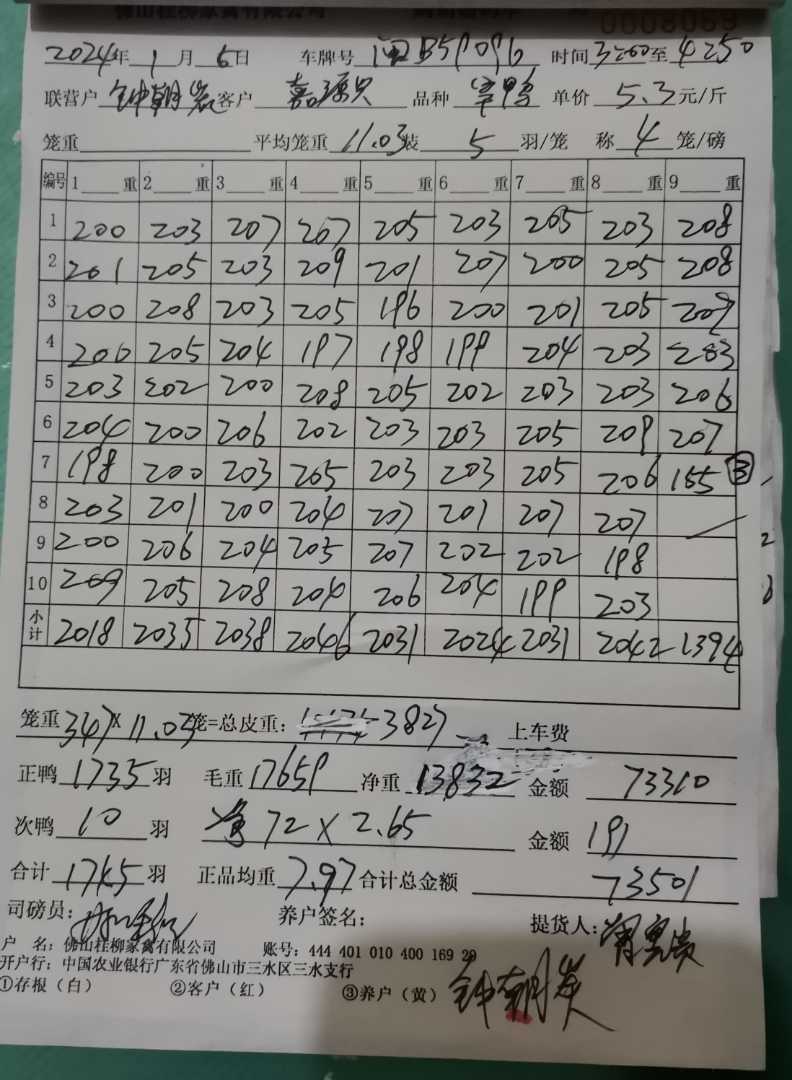 佛山桂柳家禽有限公司
0008069
2024年 1 月 6 日 车牌号 闽B59096 时间 3:00 至 4:50
联营户 钟朝炭 客户 嘉源兴 品种 羊鸭 单价 5.3 元/斤
笼重 平均笼重 11.03 装 5 羽/笼 称 4 笼/磅
编号 1 重 2 重 3 重 4 重 5 重 6 重 7 重 8 重 9 重
1 200 203 207 207 205 203 205 203 208
2 201 205 203 209 201 207 200 205 208
3 200 208 203 205 196 200 201 205 209
4 200 205 204 197 198 199 204 203 203
5 203 202 200 208 205 202 203 203 206
6 204 200 206 202 203 203 205 209 207
7 198 200 203 205 203 203 205 206 155 ③
8 203 201 200 204 207 201 207 207
9 200 206 204 205 207 202 202 198
10 209 205 208 204 206 204 199 203
小计 2018 2035 2038 2046 2031 2024 2031 2042 1394
笼重 347 × 11.03 笼=总皮重: 3827 上车费
正鸭 1735 羽 毛重 17659 净重 13832 金额 73310
次鸭 10 羽 72 × 2.65 金额 191
合计 1745 羽 正品均重 7.97 合计总金额 73501
司磅员: 养户签名: 提货人:
户 名: 佛山桂柳家禽有限公司 账号: 444 401 010 400 169 29
开户行: 中国农业银行广东省佛山市三水区三水支行
①存根（白） ②客户（红） ③养户（黄） 钟朝炭